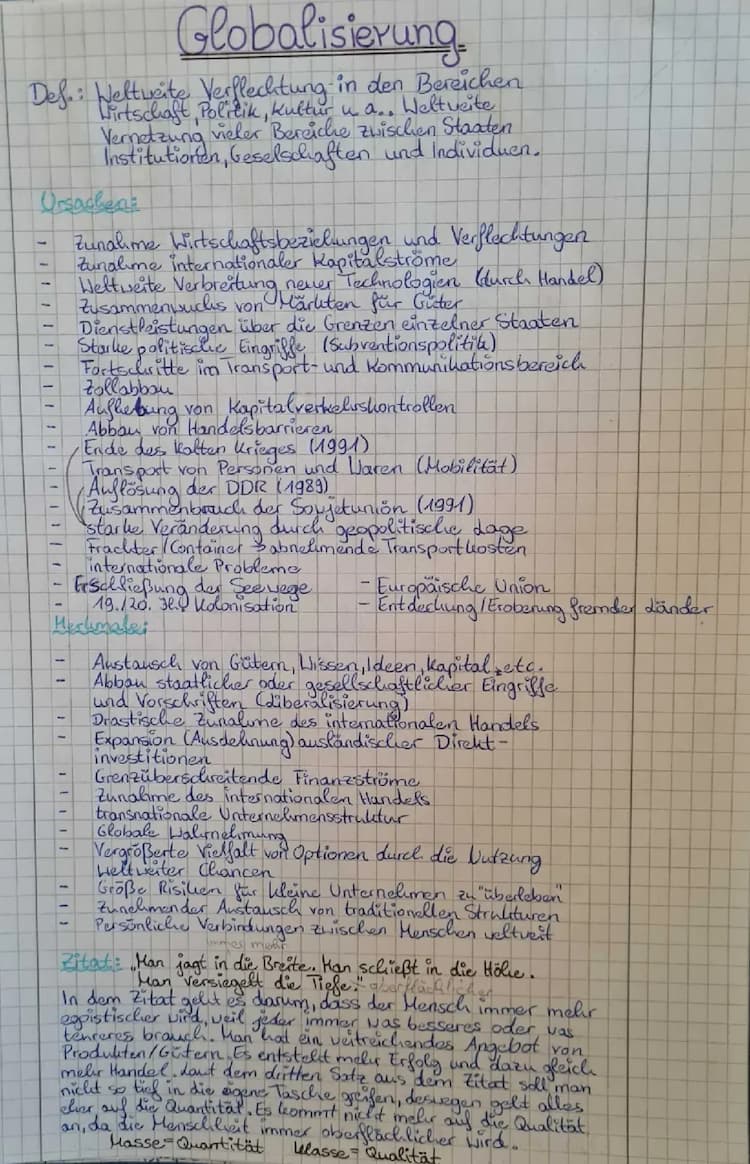 Globalisierung
Def.: Weltweite Verflechtung in den Bereichen
Wirtschaft, Politik, Kultur u. a.. Weltweite
Vernetzung vieler Bereiche zwischen Staaten
Institutionen, Geselschaften und Individuen.
Ursachen:
- Zunahme Wirtschaftsbeziehungen und Verflechtungen
- Zunahme internationaler Kapitalströme
- Weltweite Verbreitung neuer Technologien (durch Handel)
- Zusammenwuchs von Märkten für Güter
- Dienstleistungen über die Grenzen einzelner Staaten
- Starke politische Eingriffe (Subventionspolitik)
- Fortschritte im Transport- und Kommunikationsbereich
- Zollabbau
- Aufhebung von Kapitalverkehrskontrollen
- Abbau von Handelsbarrieren
- Ende des Kalten Krieges (1991)
- Transport von Personen und Waren (Mobilität)
- Auflösung der DDR (1989)
- Zusammenbruch der Sowjetunion (1991)
- starke Veränderung durch geopolitische Lage
- Frachter/Container → abnehmende Transportkosten
- internationale Probleme
- Erschließung der Seewege - Europäische Union
- 19./20. Jh. Kolonisation - Entdeckung/Eroberung fremder Länder
Merkmale:
- Austausch von Gütern, Wissen, Ideen, Kapital, etc.
- Abbau staatlicher oder gesellschaftlicher Eingriffe
und Vorschriften (Liberalisierung)
- Drastische Zunahme des internationalen Handels
- Expansion (Ausdehnung) ausländischer Direkt-
investitionen
- Grenzüberschreitende Finanzströme
- Zunahme des internationalen Handels
- transnationale Unternehmensstruktur
- Globale Wahrnehmung
- Vergrößerte Vielfalt von Optionen durch die Nutzung
weltweiter Chancen
- Größe Risiken für kleine Unternehmen zu "überleben"
- Zunehmender Austausch von traditionellen Strukturen
- Persönliche Verbindungen zwischen Menschen weltweit
immer mehr
Zitat: „Man jagt in die Breite. Man schießt in die Höhe.
Man versiegelt die Tiefe." oberflächlicher
In dem Zitat geht es darum, dass der Mensch immer mehr
egoistischer wird, weil jeder immer was besseres oder was
teureres brauch. Man hat ein weitreichendes Angebot von
Produkten/Gütern. Es entsteht mehr Erfolg und dazu gleich
mehr Handel. Laut dem dritten Satz aus dem Zitat soll man
nicht so tief in die eigene Tasche greifen, deswegen geht alles
eher auf die Quantität. Es kommt nicht mehr auf die Qualität
an, da die Menschheit immer oberflächlicher wird.
Masse = Quantität Klasse = Qualität